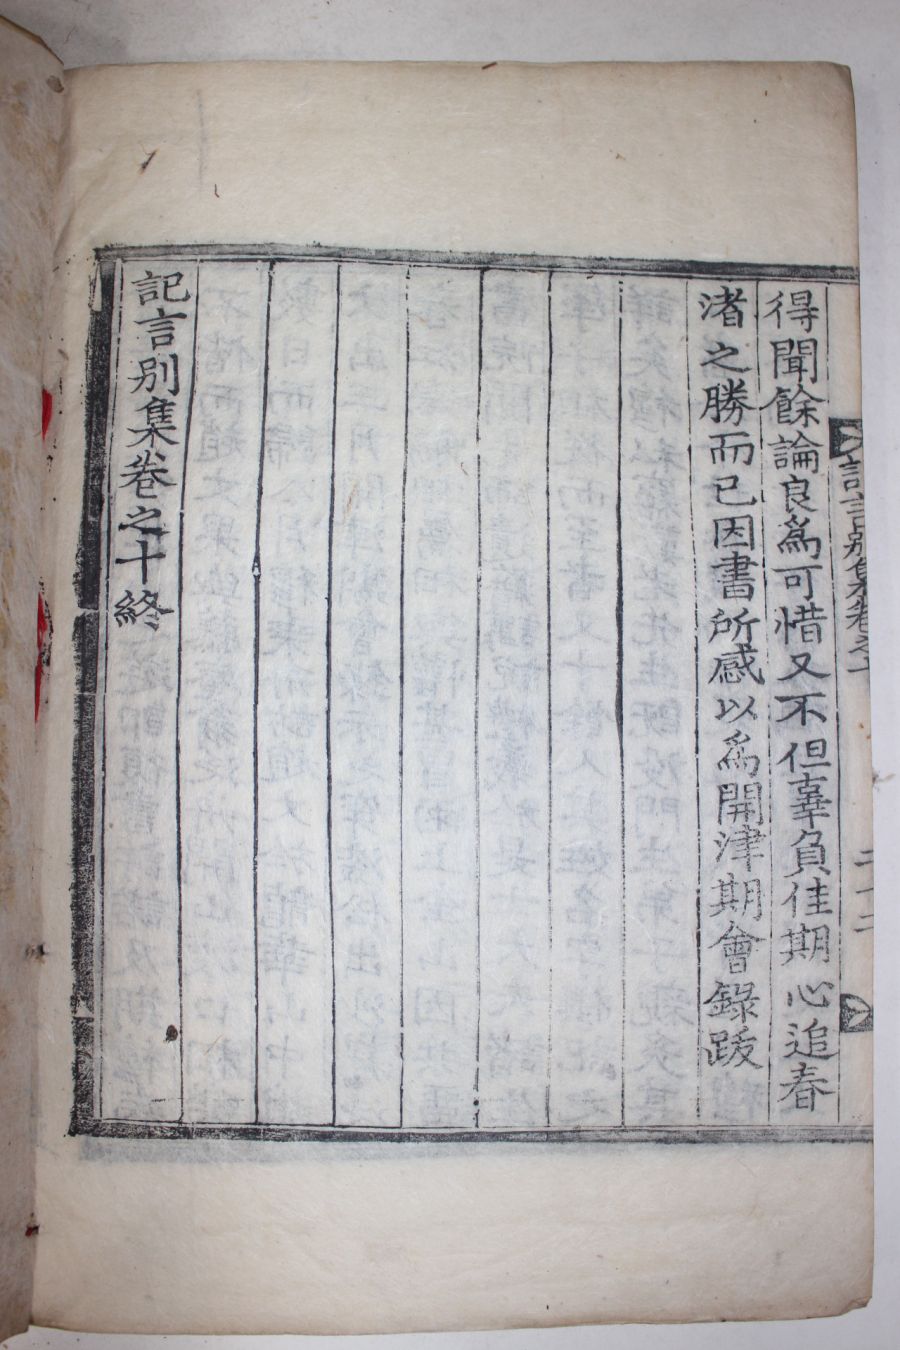 記言別集卷之十
二十二
得聞餘論良爲可惜又不但辜負佳期心追春
渚之勝而已因書所感以爲開津期會錄跋
記言別集卷之十終